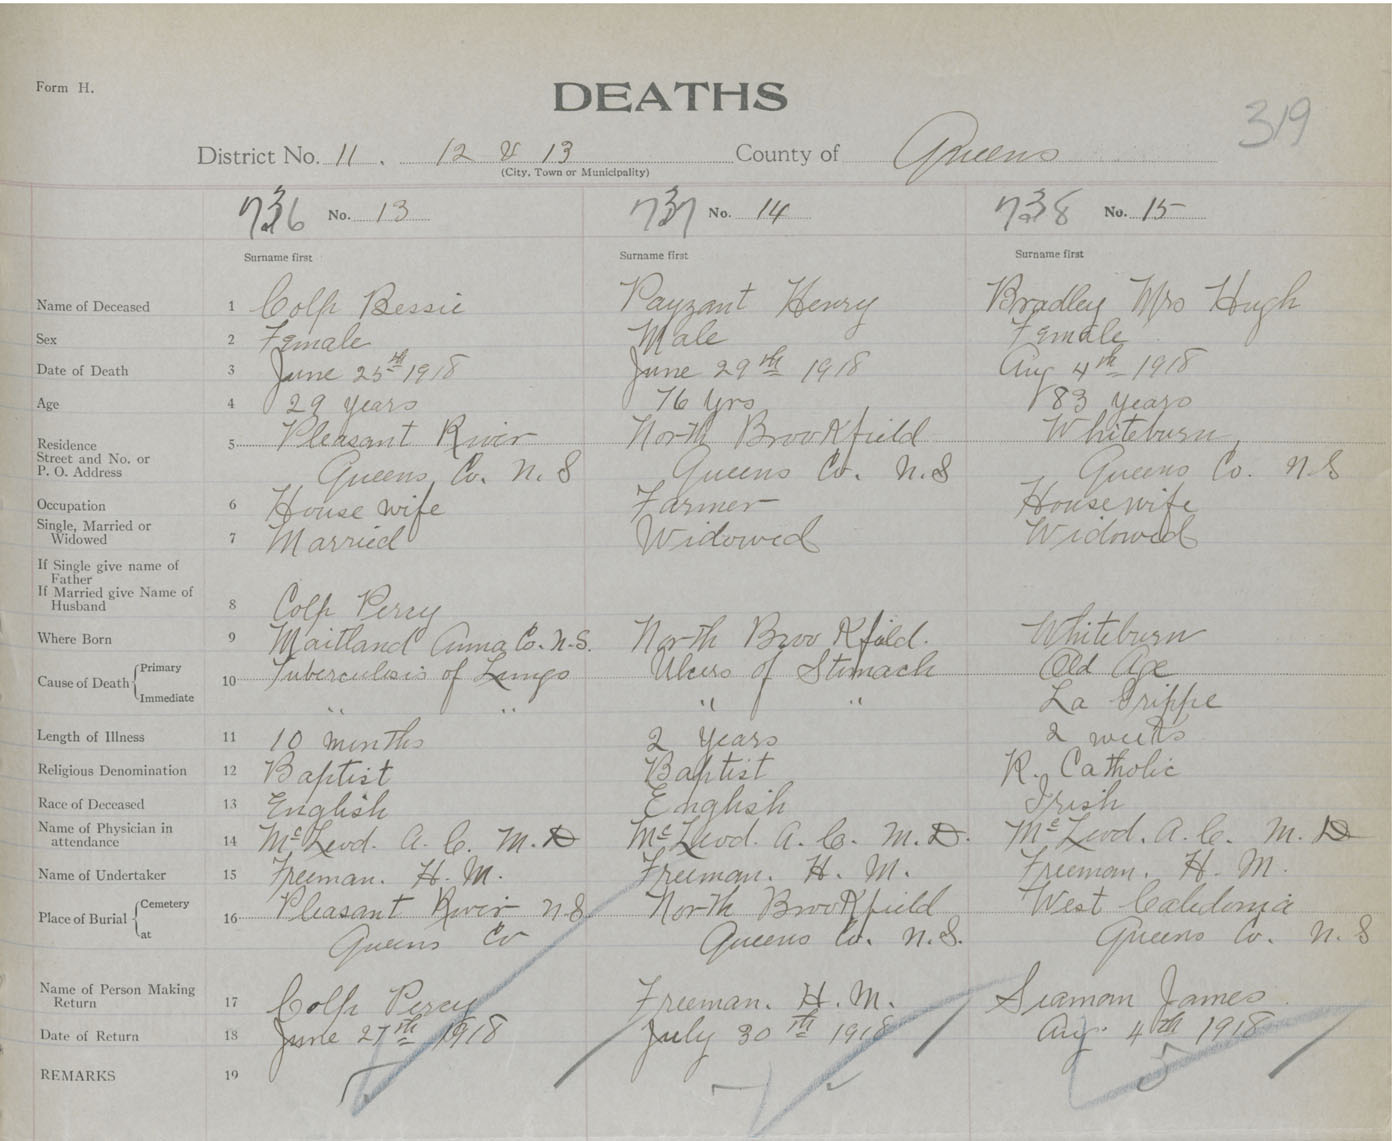 Form H.
DEATHS
319
District No. 11. 12 & 13 County of Queens
(City, Town or Municipality)
736 No. 13 737 No. 14 738 No. 15
Surname first Surname first Surname first
Name of Deceased 1 Colp Bessie Payzant Henry Bradley Mrs Hugh
Sex 2 Female Male Female
Date of Death 3 June 25th 1918 June 29th 1918 Aug 4th 1918
Age 4 29 years 76 yrs 83 years
Residence 5 Pleasant River North Brookfield Whiteburn
Street and No. or
P. O. Address Queens Co. N.S Queens Co. N.S Queens Co. N.S
Occupation 6 House wife Farmer Housewife
Single, Married or
Widowed 7 Married Widowed Widowed
If Single give name of
Father
If Married give Name of
Husband 8 Colp Percy
Where Born 9 Maitland Anna Co. N.S. North Brookfield. Whiteburn
Cause of Death Primary 10 Tuberculosis of Lungs Ulcers of Stomach Old Age
Immediate " " " " La Grippe
Length of Illness 11 10 months 2 years 2 weeks
Religious Denomination 12 Baptist Baptist R. Catholic
Race of Deceased 13 English English Irish
Name of Physician in
attendance 14 McLeod. A. C. M.D McLeod. A. C. M.D. McLeod. A. C. M.D
Name of Undertaker 15 Freeman. H. M. Freeman. H. M. Freeman. H. M.
Place of Burial Cemetery 16 Pleasant River N.S North Brookfield West Caledonia
at Queens Co Queens Co. N.S. Queens Co. N.S
Name of Person Making
Return 17 Colp Percy Freeman. H. M. James
Date of Return 18 June 27th 1918 July 30th 1918 Aug. 4th 1918
REMARKS 19